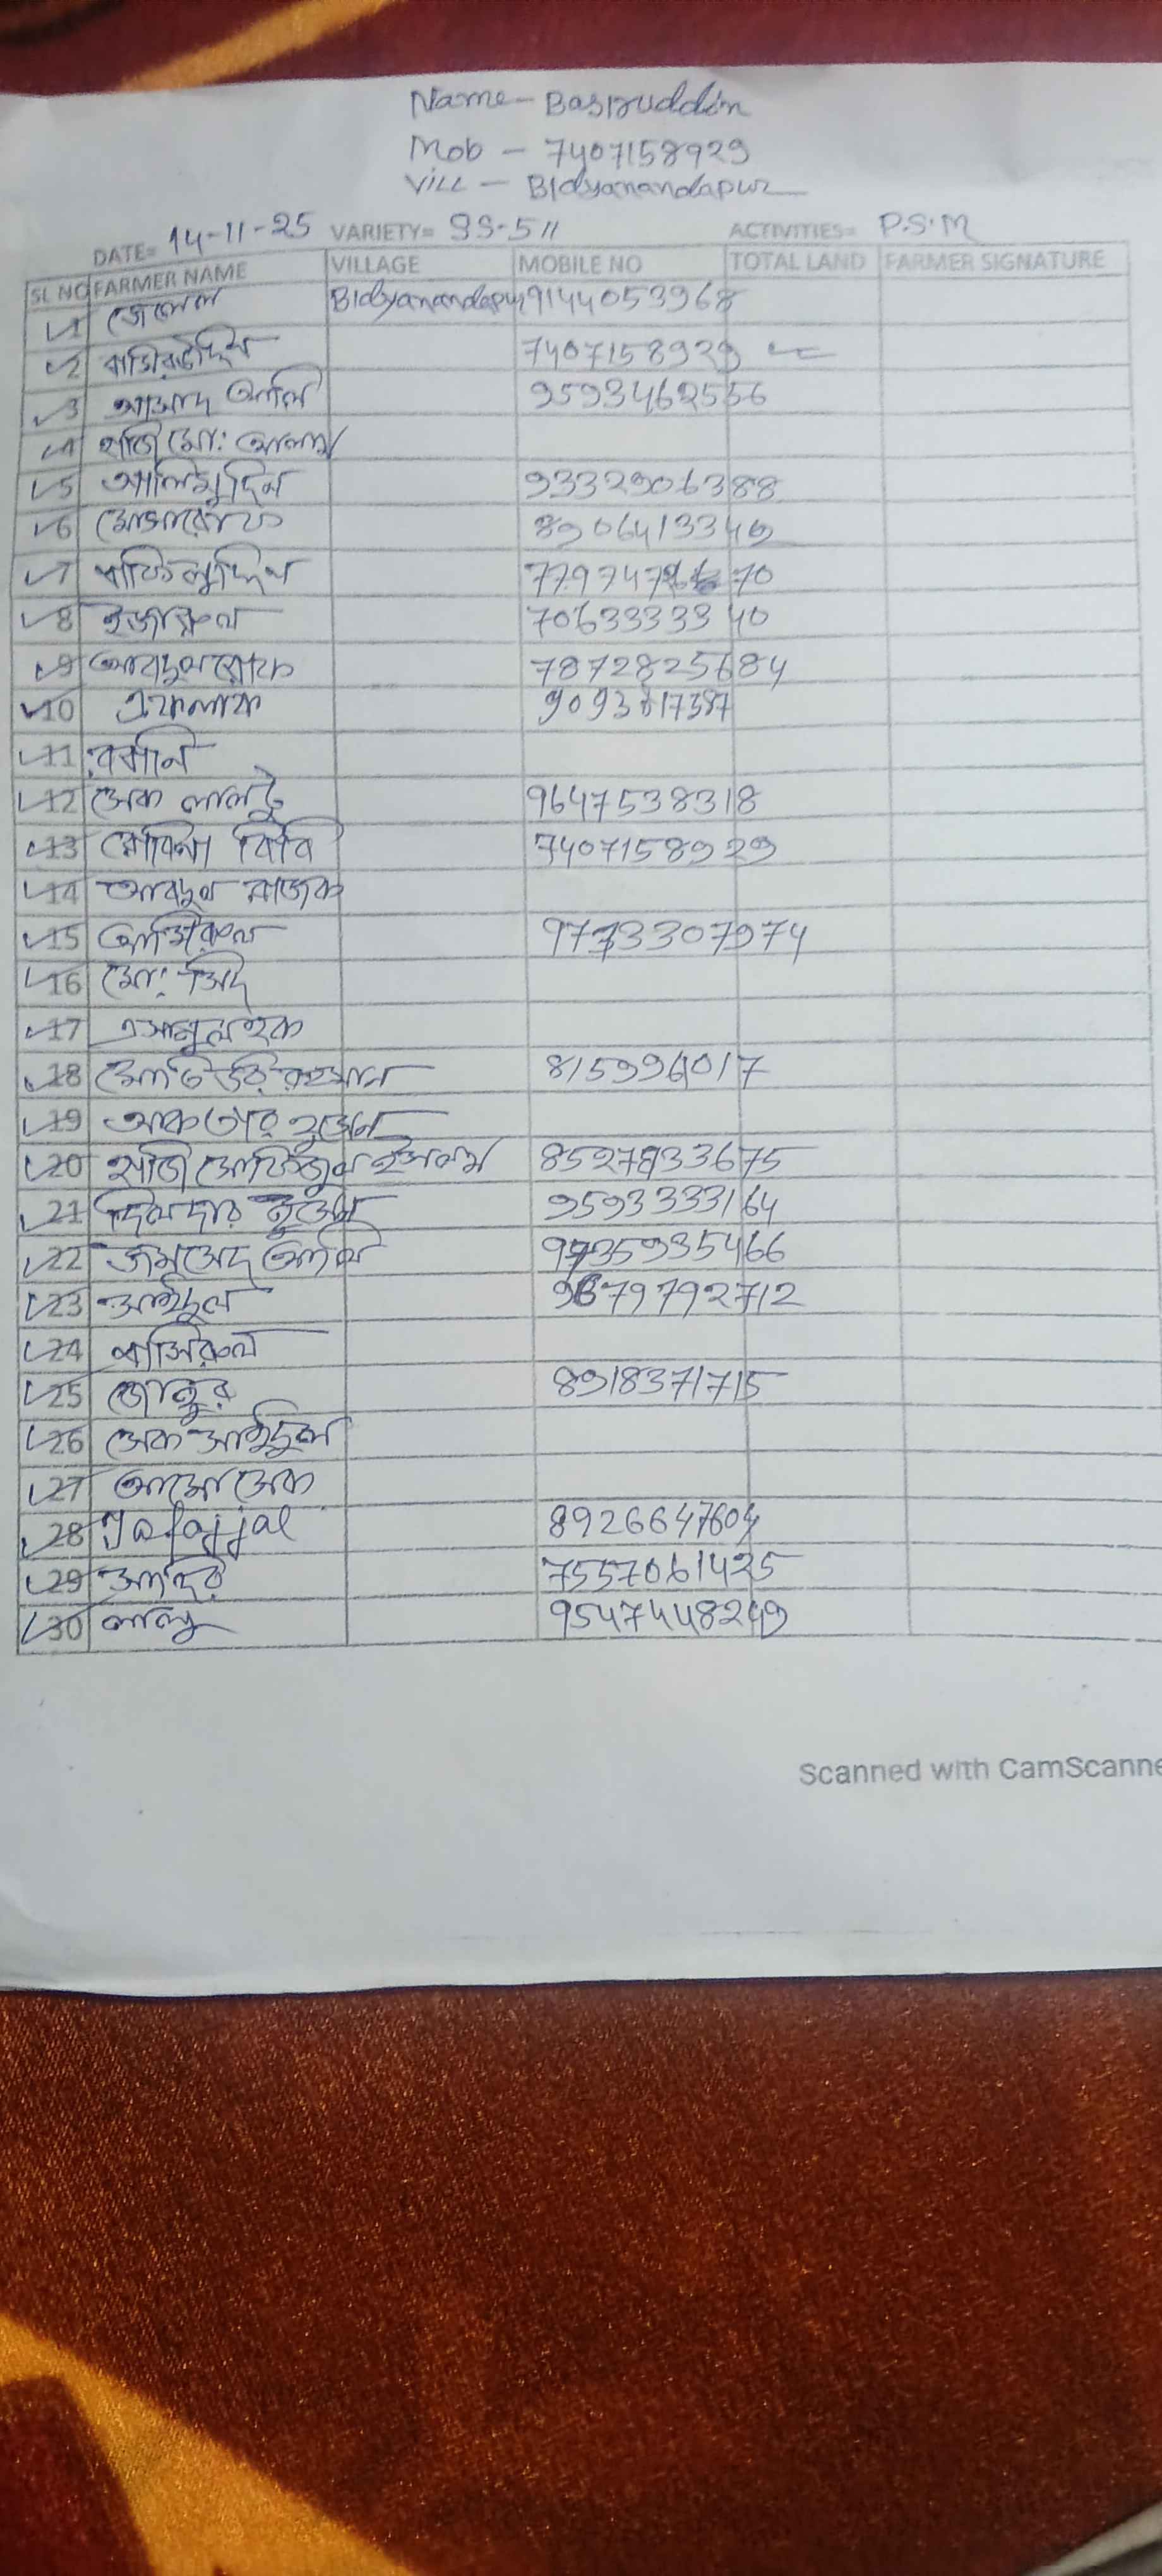 Name - Basiruddin
Mob - 7407158929
Vill - Bidyanandapur
DATE= 14-11-25 VARIETY= SS-511 ACTIVITIES= P.S.M
SL NO FARMER NAME VILLAGE MOBILE NO TOTAL LAND FARMER SIGNATURE
1 জেলেল Bidyanandapur 9144053968
2 বাসিরউদ্দিন 7407158929
3 আসাদ আলি 9593462556
4 হাজি মো: আলম
5 আলিমুদ্দিন 9332906388
6 মোসারোফ 8906413349
7 কফিলুদ্দিন 70
8 ইজারুল 7063333340
9 আবদুল রোফ 7872825684
10 একলাক 9093617387
11 রব্বানি
12 সেক লালটু 9647538318
13 রোবিনা বিবি 7407158929
14 আবদুল রাজক
15 আমিরুল
16 মো: সিদ
17 এসানুল হক
18 মোতিউর রহমান 815996017
19 আকতার হুসেন
20 হাজি মোফিজুল ইসলাম
21 দিলদার হুসেন 9593333164
22 জমসেদ আলি 9735935466
23 সাইদুল 9679792712
24 বাসিরুল
25 জোনুর 8918371715
26 সেক সাইদুল
27 সেক
28 8926647604
29 7557061425
30 লালু 9547448249
Scanned with CamScanne